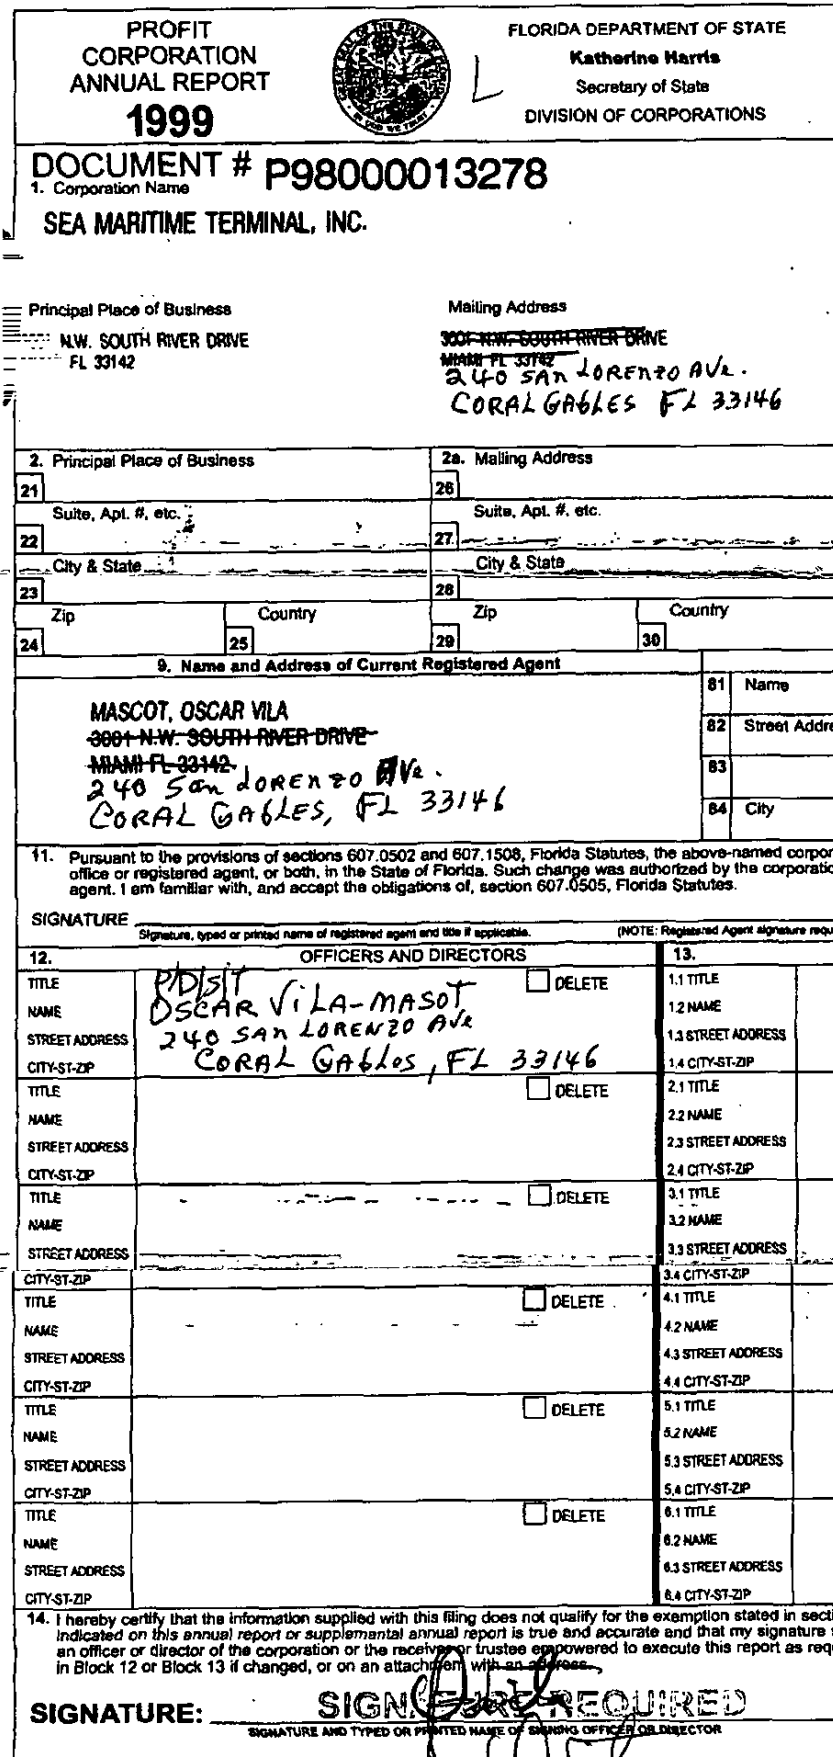 PROFIT
CORPORATION
ANNUAL REPORT
1999
FLORIDA DEPARTMENT OF STATE
Katherine Harris
Secretary of State
DIVISION OF CORPORATIONS
DOCUMENT # P98000013278
1. Corporation Name
SEA MARITIME TERMINAL, INC.
Principal Place of Business
N.W. SOUTH RIVER DRIVE
FL 33142
Mailing Address
3001 N.W. SOUTH RIVER DRIVE
MIAMI FL 33142
240 SAN LORENZO AVE.
CORAL GABLES FL 33146
2. Principal Place of Business
2a. Mailing Address
21
26
Suite, Apt. #, etc.
Suite, Apt. #, etc.
22
27
City & State
City & State
23
28
Zip Country Zip Country
24 25 29 30
9. Name and Address of Current Registered Agent
MASCOT, OSCAR VILA
3001 N.W. SOUTH RIVER DRIVE
MIAMI FL 33142
240 San LORENZO AVe.
CORAL GABLES, FL 33146
81 Name
82 Street Addre
83
84 City
11. Pursuant to the provisions of sections 607.0502 and 607.1508, Florida Statutes, the above-named corpor
office or registered agent, or both, in the State of Florida. Such change was authorized by the corporatio
agent. I am familiar with, and accept the obligations of, section 607.0505, Florida Statutes.
SIGNATURE
Signature, typed or printed name of registered agent and title if applicable. (NOTE: Registered Agent signature requ
12. OFFICERS AND DIRECTORS 13.
TITLE P/D/S/T DELETE 1.1 TITLE
NAME OSCAR VILA-MASOT 1.2 NAME
STREET ADDRESS 240 SAN LORENZO AVe 1.3 STREET ADDRESS
CITY-ST-ZIP CORAL GABLES, FL 33146 1.4 CITY-ST-ZIP
TITLE DELETE 2.1 TITLE
NAME 2.2 NAME
STREET ADDRESS 2.3 STREET ADDRESS
CITY-ST-ZIP 2.4 CITY-ST-ZIP
TITLE DELETE 3.1 TITLE
NAME 3.2 NAME
STREET ADDRESS 3.3 STREET ADDRESS
CITY-ST-ZIP 3.4 CITY-ST-ZIP
TITLE DELETE 4.1 TITLE
NAME 4.2 NAME
STREET ADDRESS 4.3 STREET ADDRESS
CITY-ST-ZIP 4.4 CITY-ST-ZIP
TITLE DELETE 5.1 TITLE
NAME 5.2 NAME
STREET ADDRESS 5.3 STREET ADDRESS
CITY-ST-ZIP 5.4 CITY-ST-ZIP
TITLE DELETE 6.1 TITLE
NAME 6.2 NAME
STREET ADDRESS 6.3 STREET ADDRESS
CITY-ST-ZIP 6.4 CITY-ST-ZIP
14. I hereby certify that the information supplied with this filing does not qualify for the exemption stated in secti
indicated on this annual report or supplemental annual report is true and accurate and that my signature
an officer or director of the corporation or the receiver or trustee empowered to execute this report as req
in Block 12 or Block 13 if changed, or on an attachment with an address.
SIGNATURE: SIGNATURE REQUIRED
SIGNATURE AND TYPED OR PRINTED NAME OF SIGNING OFFICER OR DIRECTOR